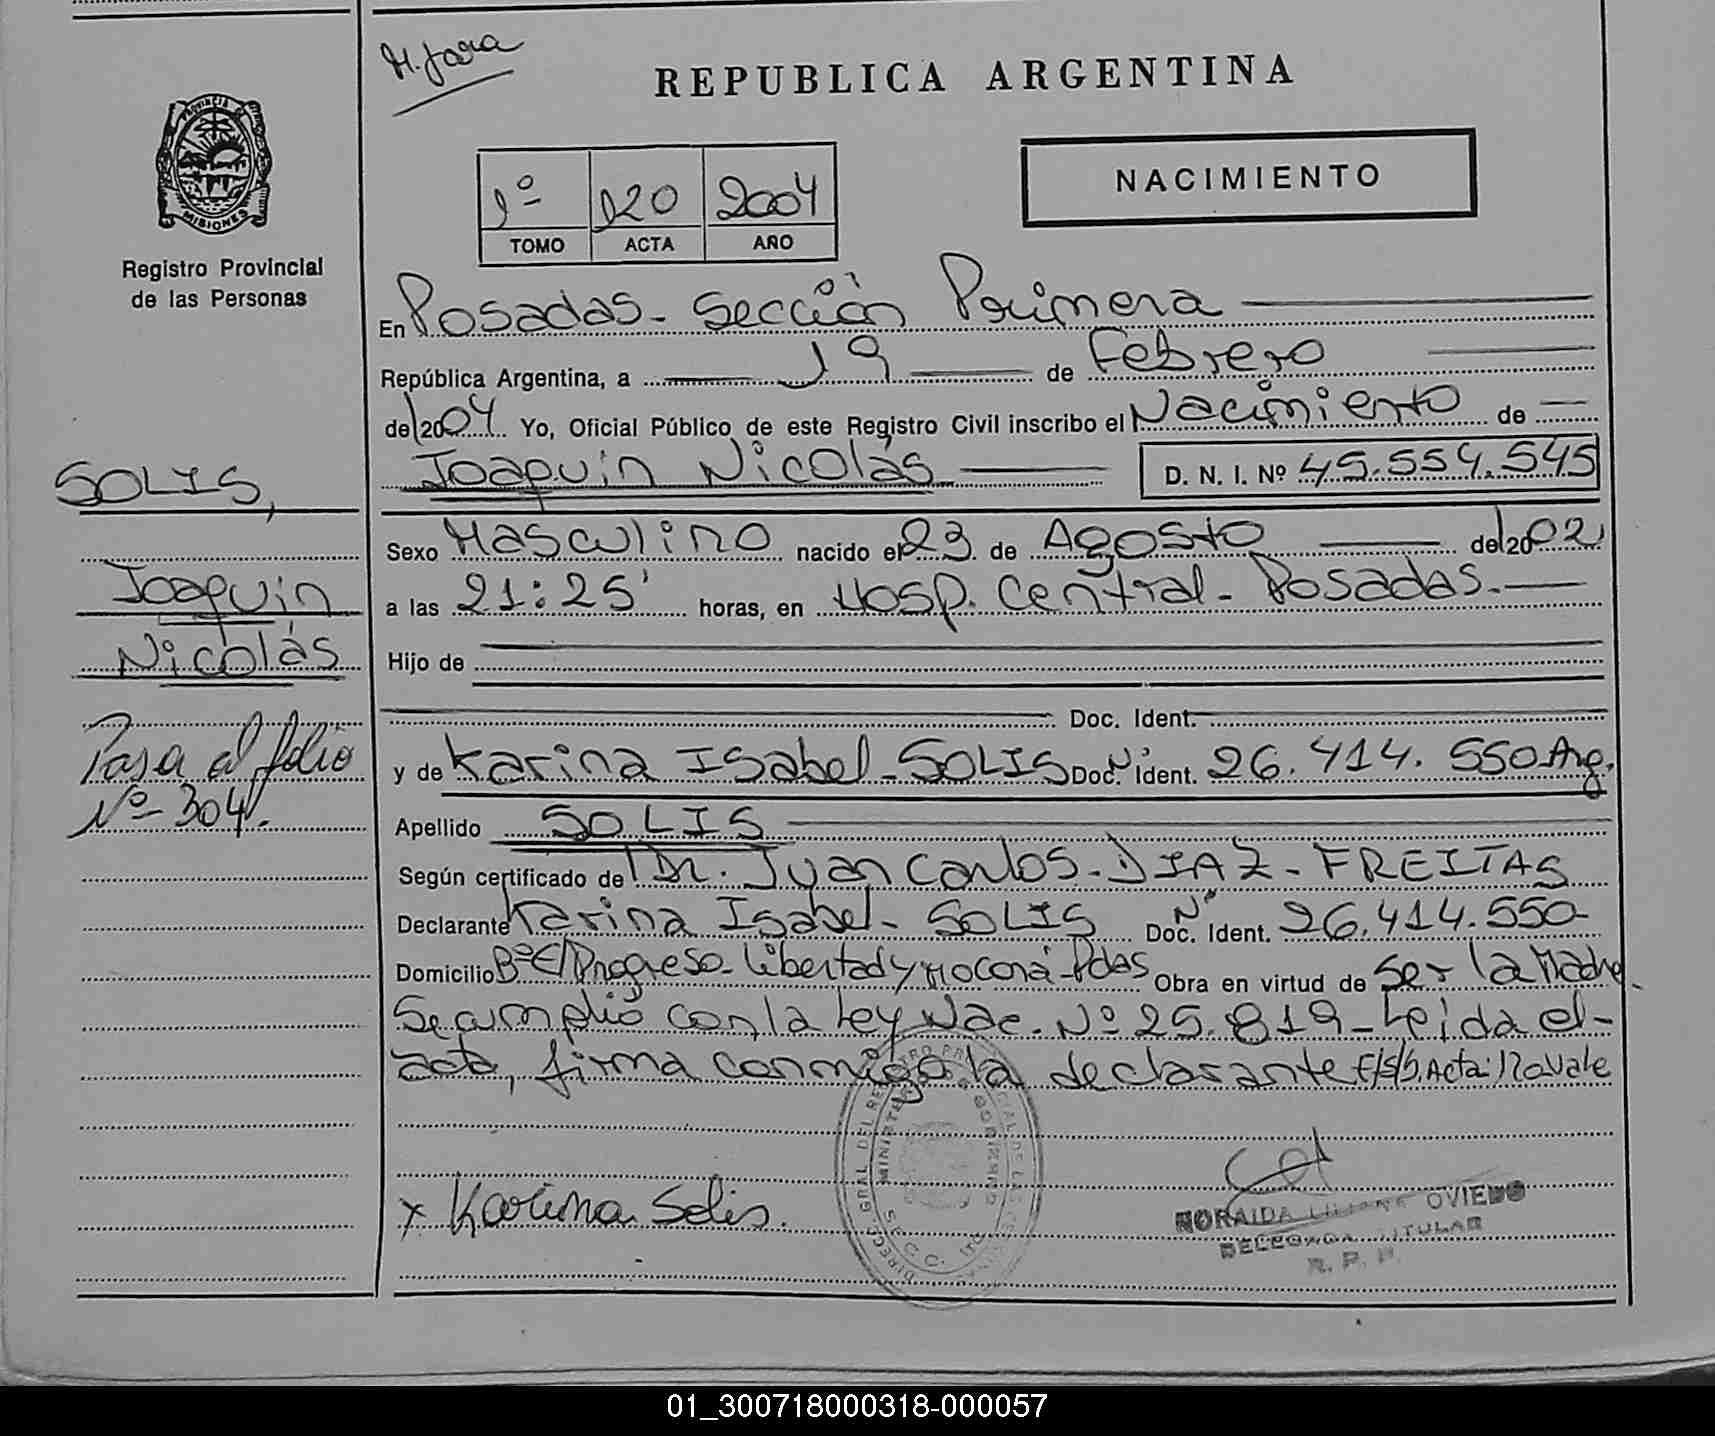 H. Jara
REPUBLICA ARGENTINA
PROVINCIA DE
MISIONES
1º 120 2004
TOMO ACTA AÑO
NACIMIENTO
Registro Provincial
de las Personas
En Posadas - Sección Primera
República Argentina, a 19 de Febrero
de 2004 Yo, Oficial Público de este Registro Civil inscribo el Nacimiento de
Joaquin Nicolás D. N. I. Nº 45.554.545
SOLIS,
Joaquin
Nicolás
Pasa al folio
Nº 304.
Sexo Masculino nacido el 23 de Agosto de 2002
a las 21:25' horas, en Hosp. Central - Posadas.
Hijo de
Doc. Ident.
y de Karina Isabel - SOLIS Doc. Nº Ident. 26.414.550 Arg.
Apellido SOLIS
Según certificado de Dr. Juan Carlos - DIAZ - FREITAS
Declarante Karina Isabel - SOLIS Doc. Nº Ident. 26.414.550
Domicilio Bº El Progreso - Libertad y Mocona - Pdas Obra en virtud de ser la Madre.
Se cumplió con la Ley Nac. Nº 25.819 - Leida el
acta, firma conmigo la declarante E/S/b. Acta: 120 Vale
x Karina Solis.
NORAIDA LILIANA OVIEDO
DELEGADA TITULAR
R. P. P.
01_300718000318-000057